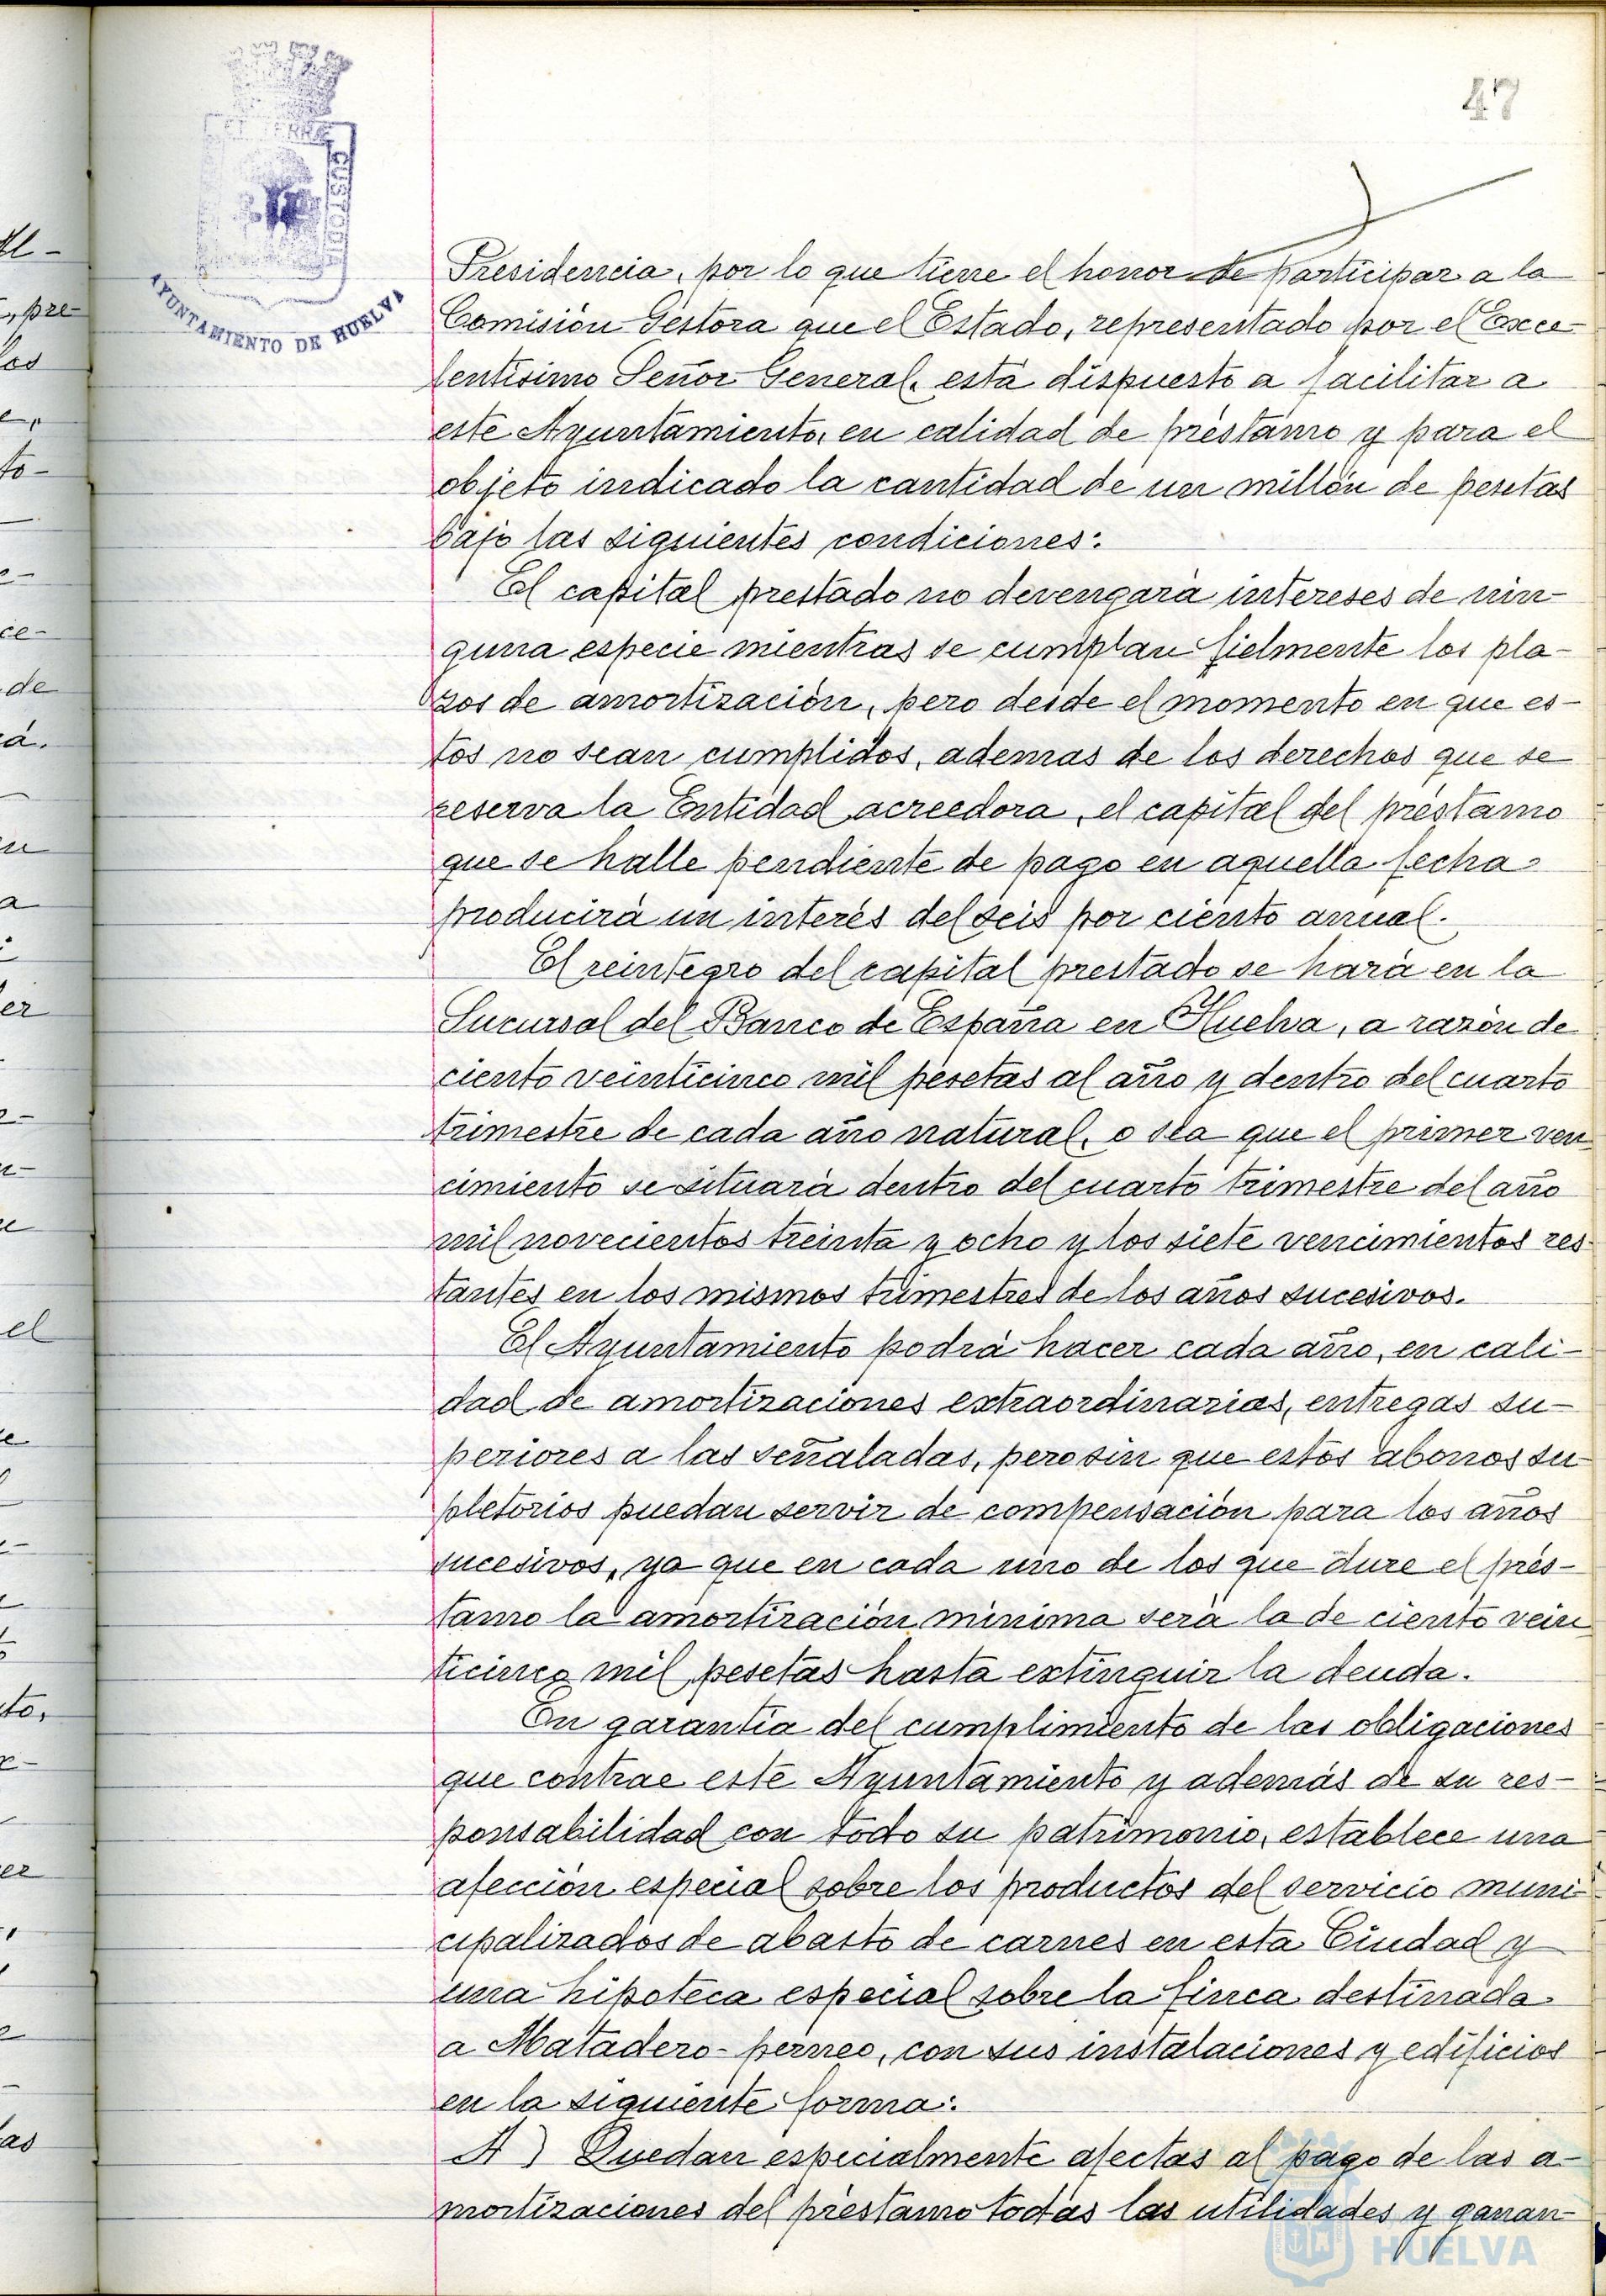 47
ET TERRÆ
CUSTODIA
AYUNTAMIENTO DE HUELVA
Presidencia, por lo que tiene el honor de participar a la
Comisión Gestora que el Estado, representado por el Exce-
lentísimo Señor General, está dispuesto a facilitar a
este Ayuntamiento, en calidad de préstamo y para el
objeto indicado la cantidad de un millón de pesetas
bajo las siguientes condiciones:
El capital prestado no devengará intereses de nin-
guna especie mientras se cumplan fielmente los pla-
zos de amortización, pero desde el momento en que es-
tos no sean cumplidos, ademas de los derechos que se
reserva la Entidad acreedora, el capital del préstamo
que se halle pendiente de pago en aquella fecha
producirá un interés del seis por ciento anual.
El reintegro del capital prestado se hará en la
Sucursal del Banco de España en Huelva, a razón de
ciento veinticinco mil pesetas al año y dentro del cuarto
trimestre de cada año natural, o sea que el primer ven
cimiento se situará dentro del cuarto trimestre del año
mil novecientos treinta y ocho y los siete vencimientos res-
tantes en los mismos trimestres de los años sucesivos.
El Ayuntamiento podrá hacer cada año, en cali-
dad de amortizaciones extraordinarias, entregas su-
periores a las señaladas, pero sin que estos abonos su-
pletorios puedan servir de compensación para los años
sucesivos, ya que en cada uno de los que dure el prés-
tamo la amortización mínima será la de ciento vein
ticinco mil pesetas hasta extinguir la deuda.
En garantía del cumplimiento de las obligaciones
que contrae este Ayuntamiento y además de su res-
ponsabilidad con todo su patrimonio, establece una
afección especial sobre los productos del servicio muni-
cipalizados de abasto de carnes en esta Ciudad y
una hipoteca especial sobre la finca destinada
a Matadero-perneo, con sus instalaciones y edificios
en la siguiente forma:
A) Quedan especialmente afectas al pago de las a-
mortizaciones del préstamo todas las utilidades y ganan-
HUELVA